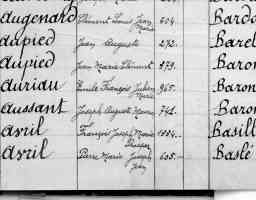 Augenard Clément Louis Jean Marie 604. Bardo
Aupied Jean Auguste 272. Barel
Aupied Jean Marie Clément 979. Baron
Auriau Emile François Julien Marie 965. Baron
Aussant Joseph Auguste Marie 741. Baron
Avril François Joseph Marie Prosper 1004. Basill
Avril Pierre Marie Joseph 605. Baslé